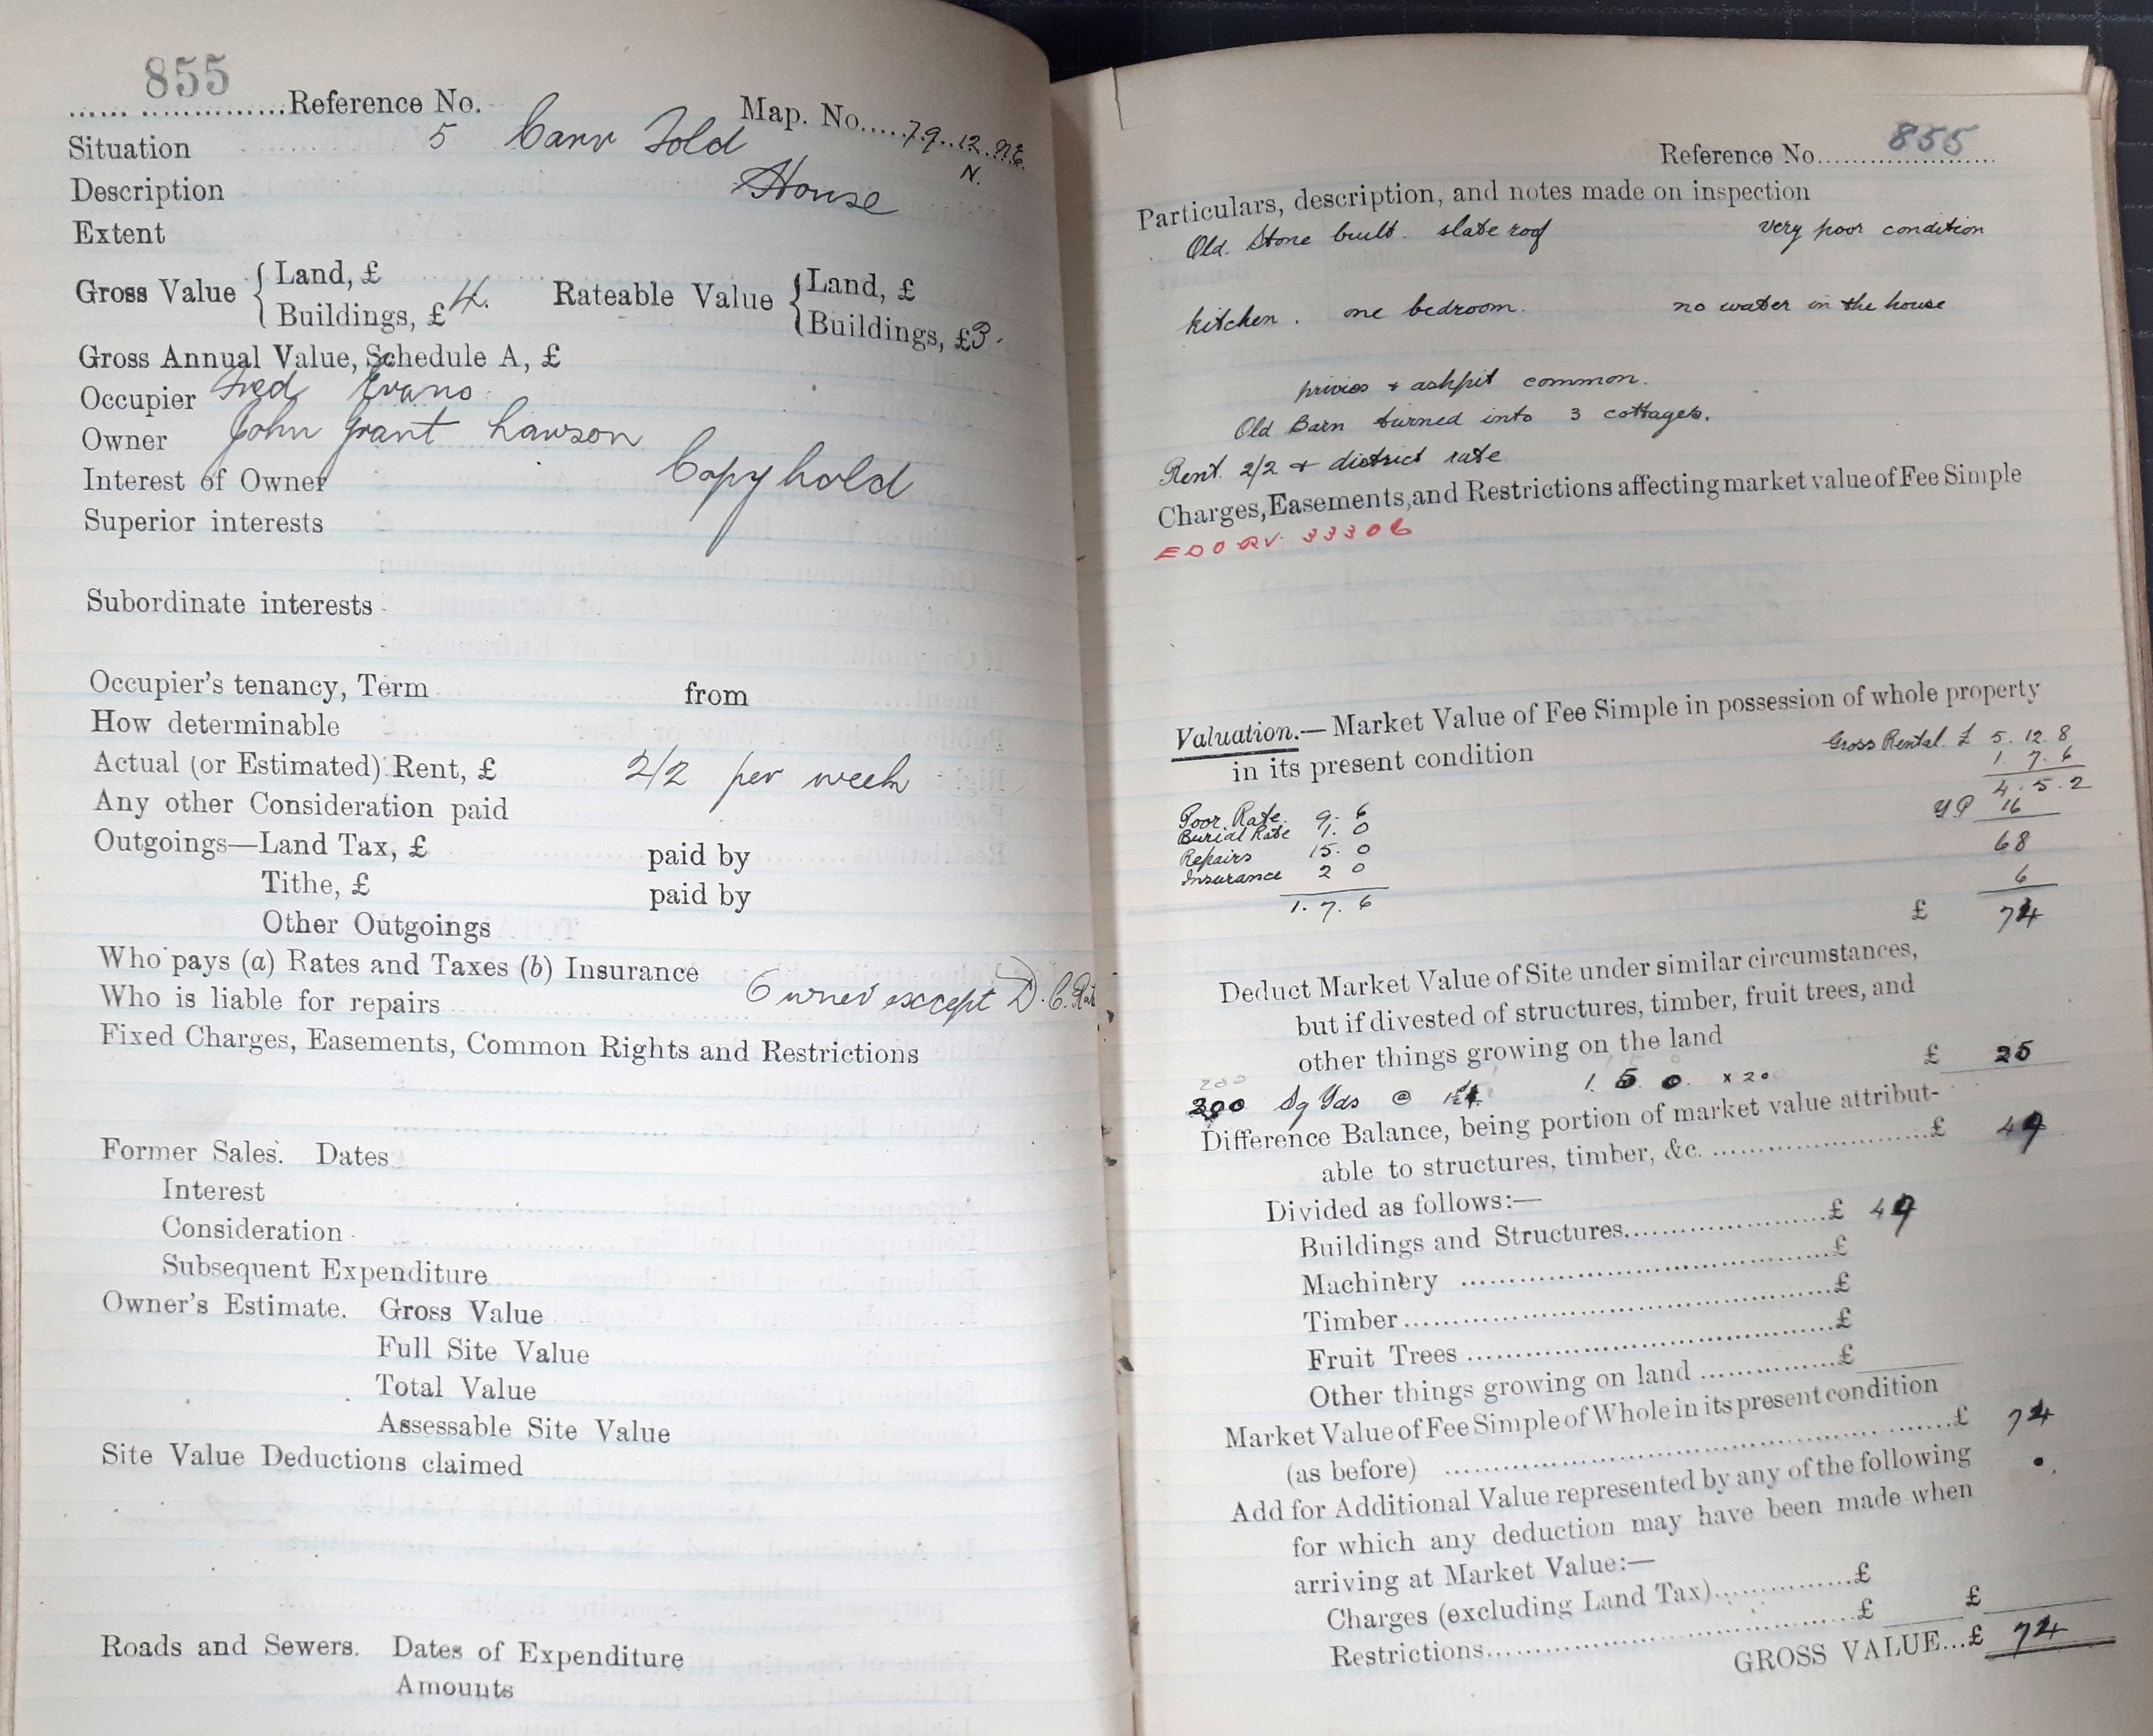 855
Reference No.
Map. No. 79. 12. N.E.
N.
Situation 5 Carr Fold
Description House
Extent
Gross Value { Land, £
Buildings, £ 4.
Rateable Value { Land, £
Buildings, £ 3.
Gross Annual Value, Schedule A, £
Occupier Fred Evans
Owner John Grant Lawson
Interest of Owner Copyhold
Superior interests
Subordinate interests
Occupier's tenancy, Term from
How determinable
Actual (or Estimated) Rent, £ 2/2 per week
Any other Consideration paid
Outgoings—Land Tax, £ paid by
Tithe, £ paid by
Other Outgoings
Who pays (a) Rates and Taxes (b) Insurance
Who is liable for repairs Owner except D. C. Rate
Fixed Charges, Easements, Common Rights and Restrictions
Former Sales. Dates
Interest
Consideration
Subsequent Expenditure
Owner's Estimate. Gross Value
Full Site Value
Total Value
Assessable Site Value
Site Value Deductions claimed
Roads and Sewers. Dates of Expenditure
Amounts
Reference No. 855
Particulars, description, and notes made on inspection
Old. Stone built. slate roof very poor condition
kitchen. one bedroom. no water in the house
privies & ashpit common.
Old Barn turned into 3 cottages.
Rent. 2/2 + district rate
Charges, Easements, and Restrictions affecting market value of Fee Simple
EDO RV. 33306
Valuation.— Market Value of Fee Simple in possession of whole property
in its present condition
Gross Rental. £ 5. 12. 8
1. 7. 6
4. 5. 2
Y.P 16
68
6
£ 74
Poor Rate. 9. 6
Burial Rate 1. 0
Repairs 15. 0
Insurance 2 0
1. 7. 6
Deduct Market Value of Site under similar circumstances,
but if divested of structures, timber, fruit trees, and
other things growing on the land £ 25
200
Sq Yds @ 1. 5. 0. x 20
Difference Balance, being portion of market value attribut-
able to structures, timber, &c. £ 49
Divided as follows:—
Buildings and Structures £ 49
Machinery £
Timber £
Fruit Trees £
Other things growing on land £
Market Value of Fee Simple of Whole in its present condition
(as before) £ 74
Add for Additional Value represented by any of the following
for which any deduction may have been made when
arriving at Market Value:—
Charges (excluding Land Tax) £
Restrictions £ £
GROSS VALUE...£ 74